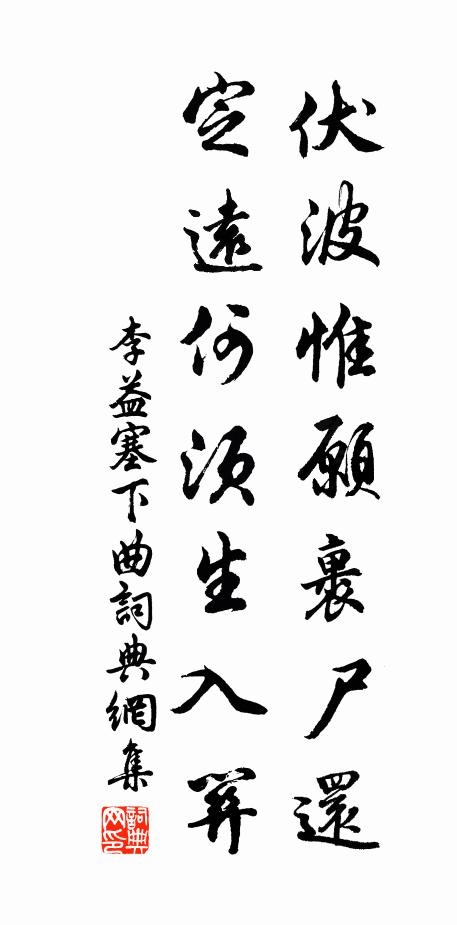 伏波惟願裹尸還
定遠何須生入關
李益塞下曲詞典網集
詞典网印